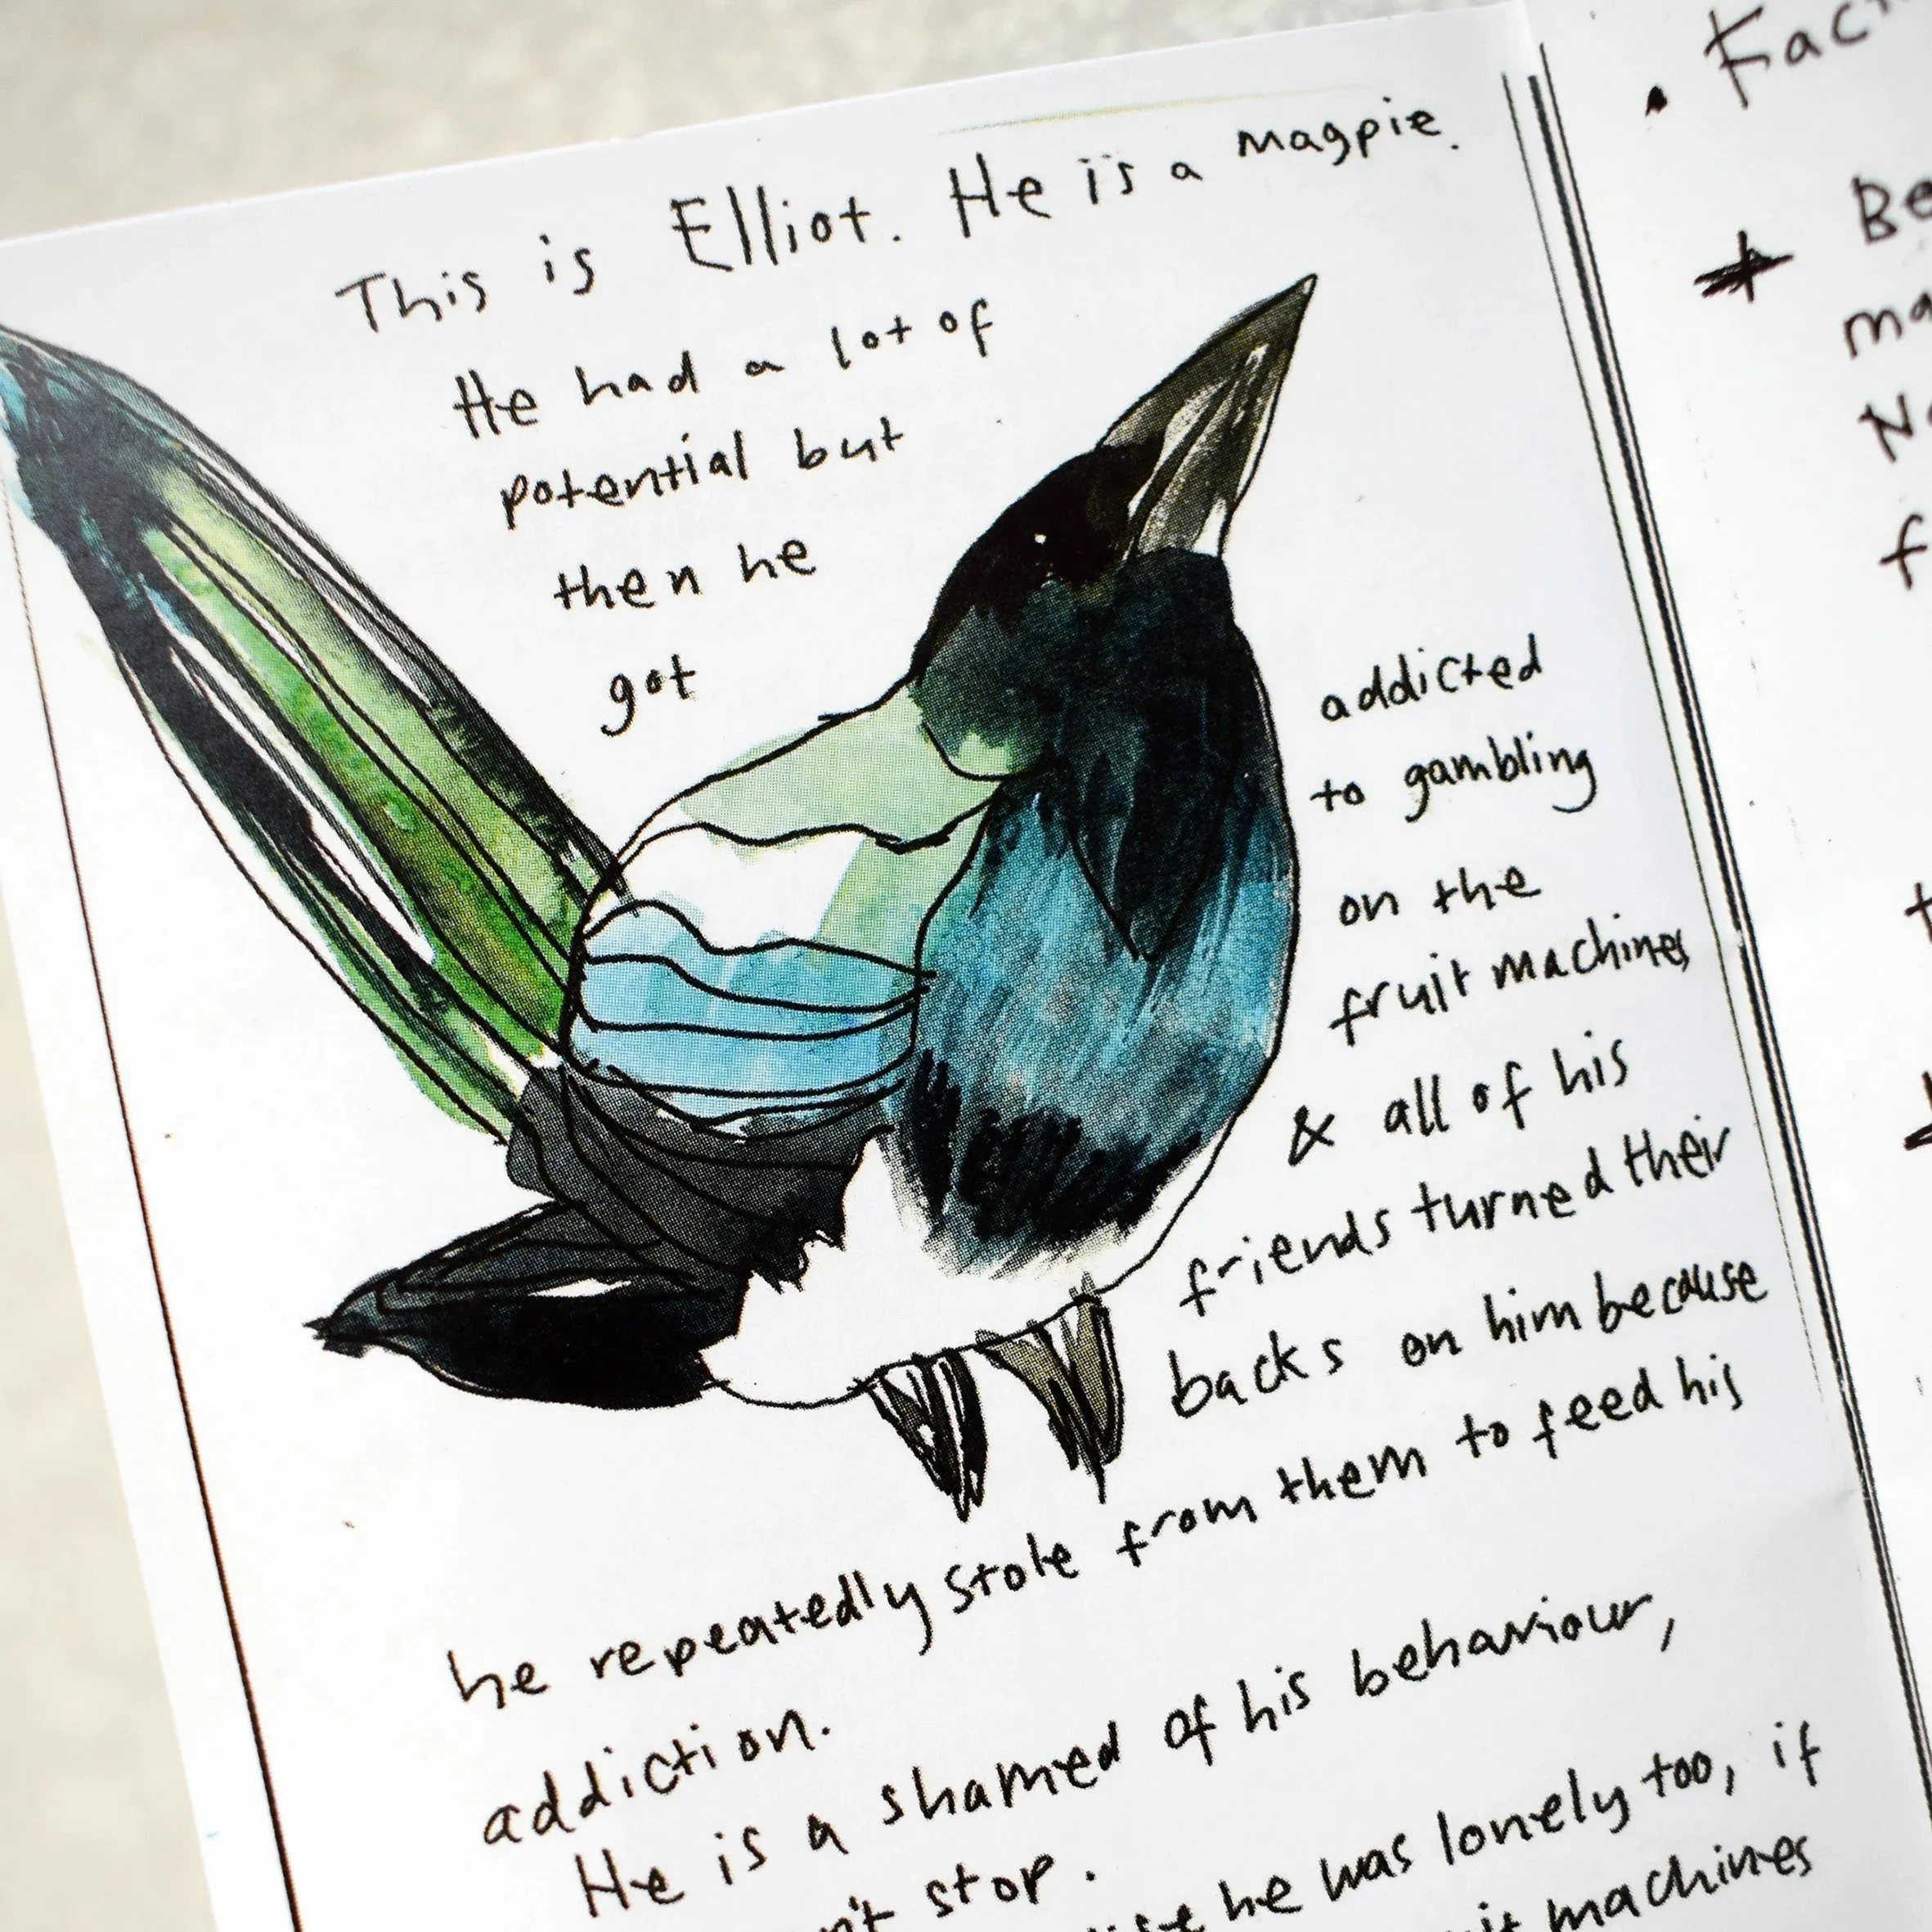 This is Elliot. He is a magpie.
He had a lot of
potential but
then he
got
addicted
to gambling
on the
fruit machines
& all of his
friends turned their
backs on him because
he repeatedly stole from them to feed his
addiction.
He is a shamed of his behaviour,
stop.
he was lonely too, if
machines